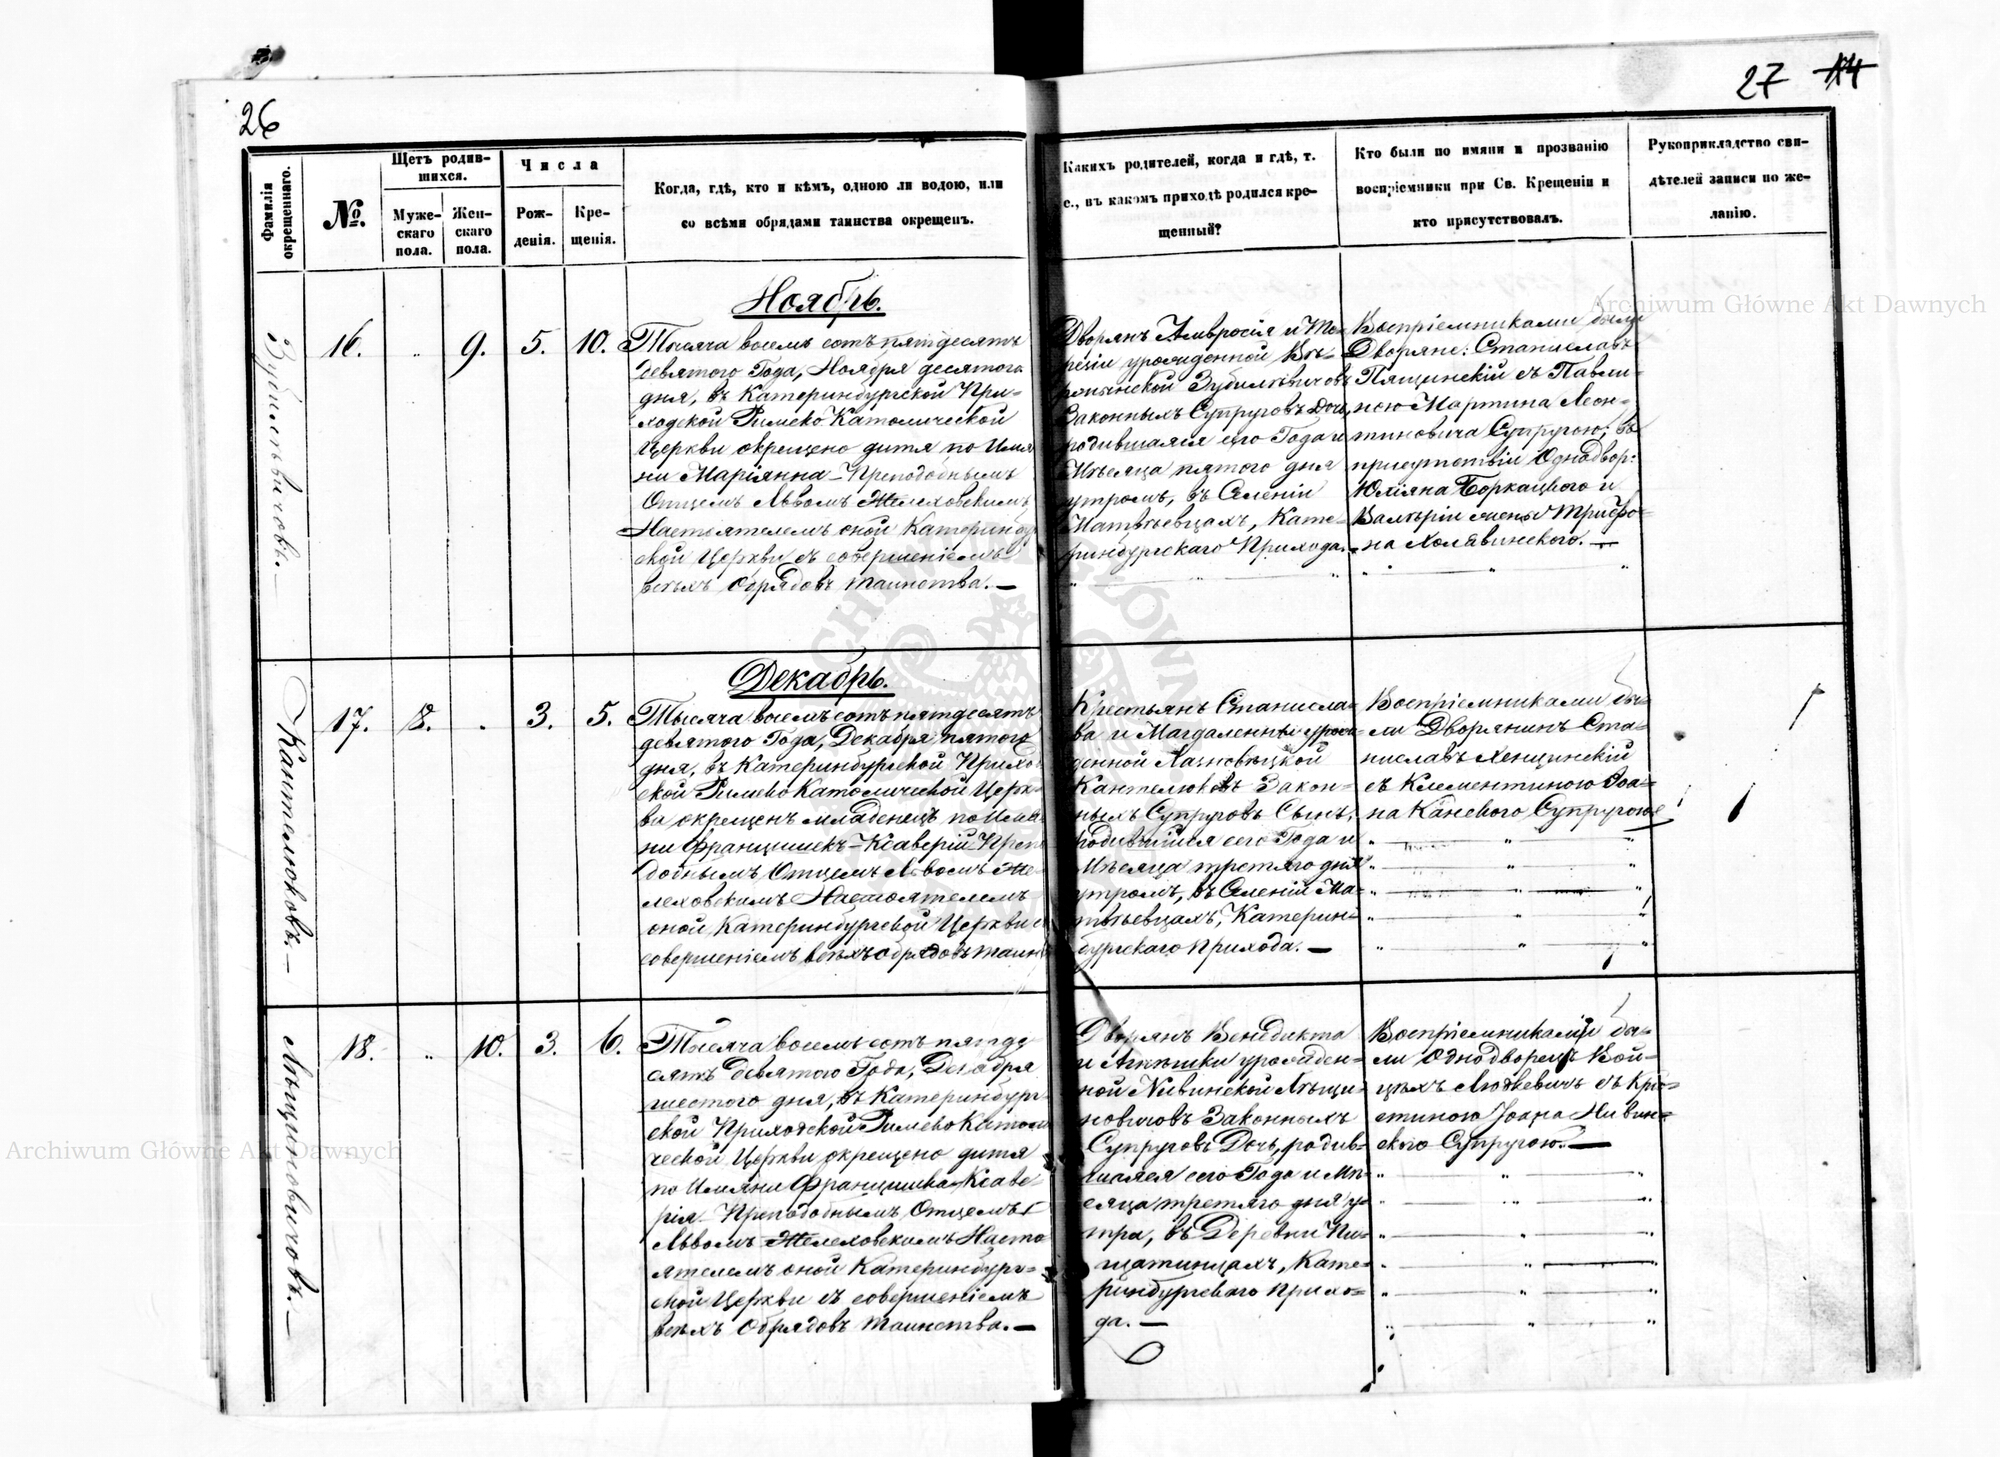 26
27 14
Фамилія окрещеннаго.
№.
Щетъ родив-
шихся.
Муже-
скаго
пола.
Жен-
скаго
пола.
Числа
Рож-
денія.
Кре-
щенія.
Когда, гдѣ, кто и кѣмъ, одною ли водою, или
со всѣми обрядами таинства окрещенъ.
Какихъ родителей, когда и гдѣ, т.
е., въ какомъ приходѣ родился кре-
щенный?
Кто были по имяни и прозванію
воспріемники при Св. Крещеніи и
кто присутствовалъ.
Рукоприкладство сви-
дѣтелей записи по же-
ланію.
Зубилевичовъ.—
16.
9.
5.
10.
Ноябрь.
Тысяча восемь сотъ пятдесятъ
девятого Года, Ноября десятого
дня, въ Катеринбургской При-
ходской Римско Католической
Церкви окрещено дитя по Имя
ни Маріянна – Преподобнымъ
Отцемъ Львомъ Желеховскимъ
Настоятелемъ оной Катеринбур
ской Церкви съ совершеніемъ
всѣхъ Обрядовъ таинства.—
Дворянъ Амвросія и Те-
ресіи урожденной
Зубилевичовъ
Законныхъ Супруговъ Дочь,
родившаяся сего Года и
Мѣсяца пятого дня
утромъ, въ Селеніи
Матвѣевцахъ, Кате-
ринбургскаго Прихода.
Воспріемниками были
Дворяне: Станиславъ
Пящинскій съ Павли-
ною Мартина Леон-
тиновича Супругою; въ
присутствіи Однодвор:
Юліяна Боркацкого и
Валѣріи жены Трифо-
на Холявинского.—
Кантелюковъ.—
17.
8.
3.
5.
Декабрь.
Тысяча восемь сотъ пятдесятъ
девятого Года, Декабря пятого
дня, въ Катеринбургской Прихо
ской Римско Католической Церк-
ви окрещенъ младенецъ по Имя
ни Францишекъ – Ксаверій – Препо
добнымъ Отцемъ Львомъ Же-
леховскимъ Настоятелемъ
оной Катеринбургской Церкви съ
совершеніемъ всѣхъ обрядовъ таин
Крестьянъ Станисла-
ва и Магдалены урож-
денной Лановѣцкой
Кантелюковъ Закон-
ныхъ Супруговъ Сынъ,
родившійся сего Года и
Мѣсяца третяго дня
утромъ, въ Селеній Ма-
твѣевцахъ, Катерин-
бургскаго прихода.—
Воспріемниками бы-
ли Дворянинъ Ста-
ниславъ Хенцинскій
съ Клементиною Іоа-
на Каневого Супругою
Лѣщиновичовъ.—
18.
10.
3.
6.
Тысяча восемь сотъ пятде
сятъ девятого Года, Декабря
шестого дня, въ Катеринбург-
ской Приходской Римско Католи
ческой Церкви окрещено дитя
по Имяни Францишка Ксаве
рія – Преподобнымъ Отцемъ
Львомъ Желеховскимъ Насто
ятелемъ оной Катеринбург-
ской Церкви съ совершеніемъ
всѣхъ Обрядовъ таинства.—
Дворянъ Венедикта
и Агнѣшки урожден-
ной Нивинской Лѣщи-
новичовъ Законныхъ
Супруговъ Дочь, родив-
шаяся сего Года и Мѣ-
сяца третяго дня у-
тра, въ Деревни Пи-
щатинцахъ, Кате-
ринбургскаго прихо-
да.—
Воспріемниками бы-
ли Однодворецъ Вой-
цѣхъ Людкевичъ съ Крис-
тиною Іоана Нивин-
ского Супругою.—
Archiwum Główne Akt Dawnych
Archiwum Główne Akt Dawnych